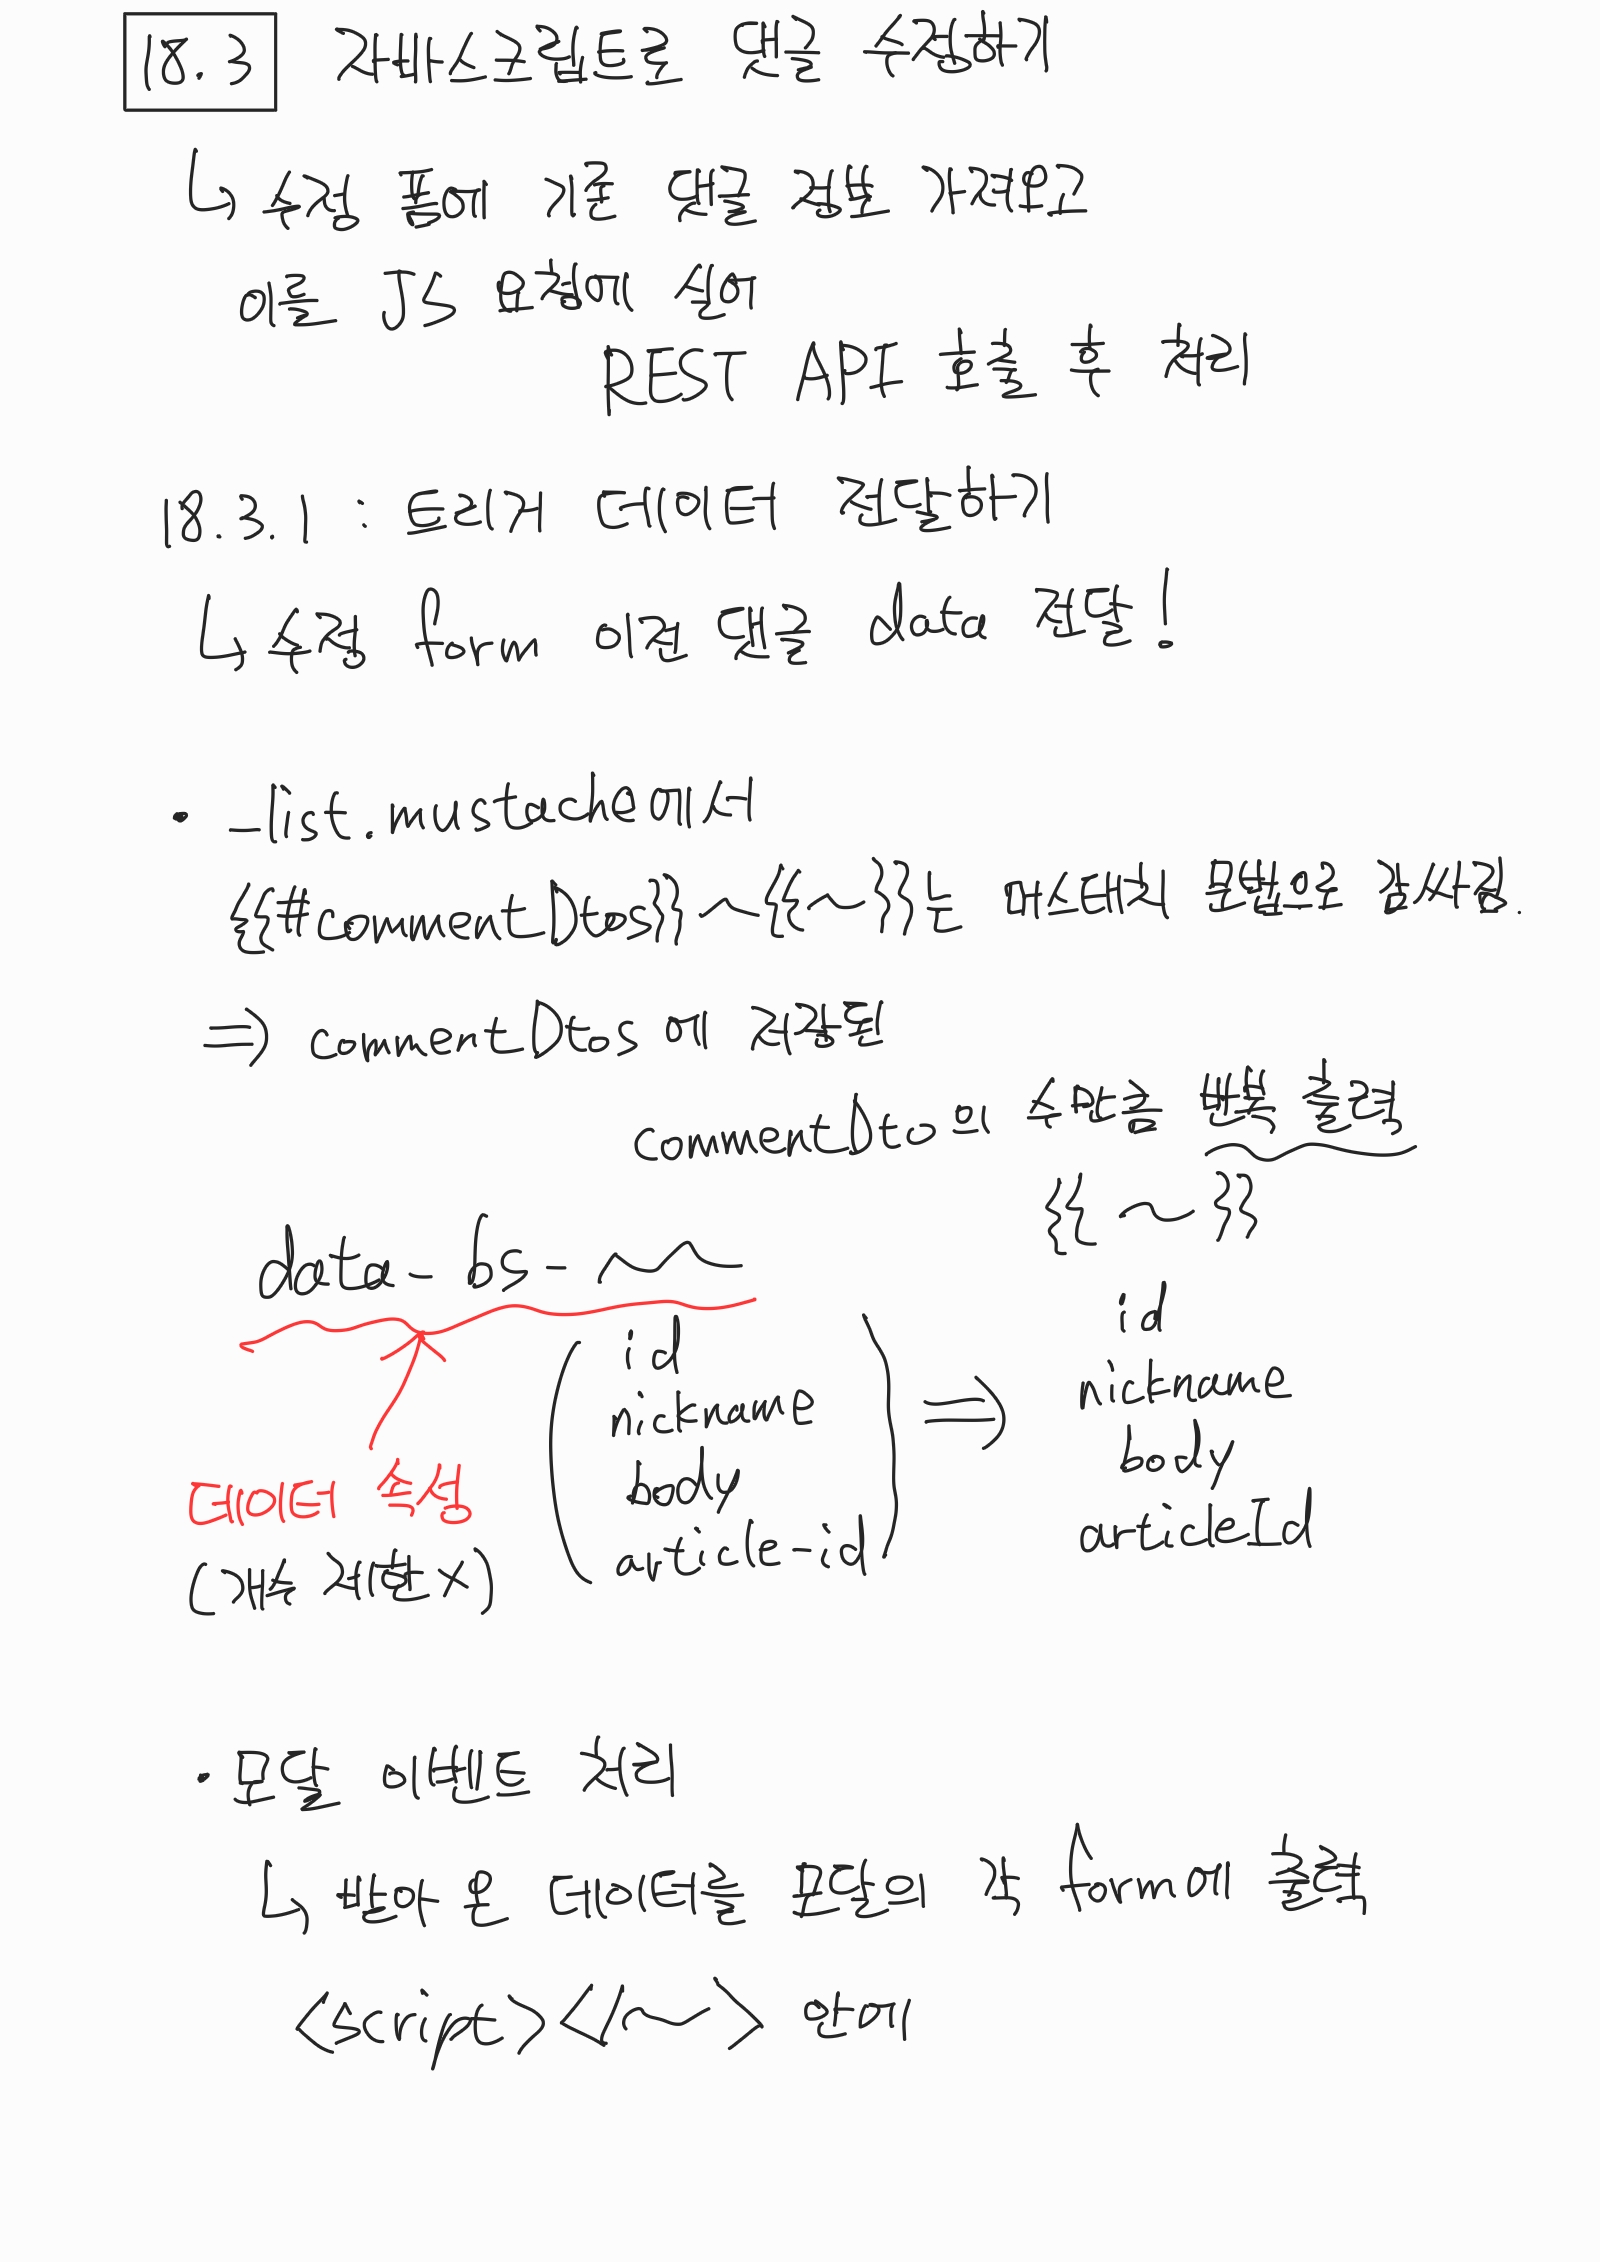 18.3 자바스크립트로 댓글 수정하기
↳ 수정 폼에 기존 댓글 정보 가져오고
이를 JS 요청에 실어
REST API 호출 후 처리
18.3.1 : 트리거 데이터 전달하기
↳ 수정 form 이전 댓글 data 전달!
• _list.mustache에서
{{#commentDtos}} ~ {{~}}는 머스테치 문법으로 감싸짐.
⇒ commentDtos에 저장된
commentDto의 수만큼 반복 출력
{{ ~ }}
data-bs-~
id
nickname
body
article-id
⇒
id
nickname
body
articleId
데이터 속성
(개수 제한 X)
• 모달 이벤트 처리
↳ 받아 온 데이터를 모달의 각 form에 출력
<script></~> 안에